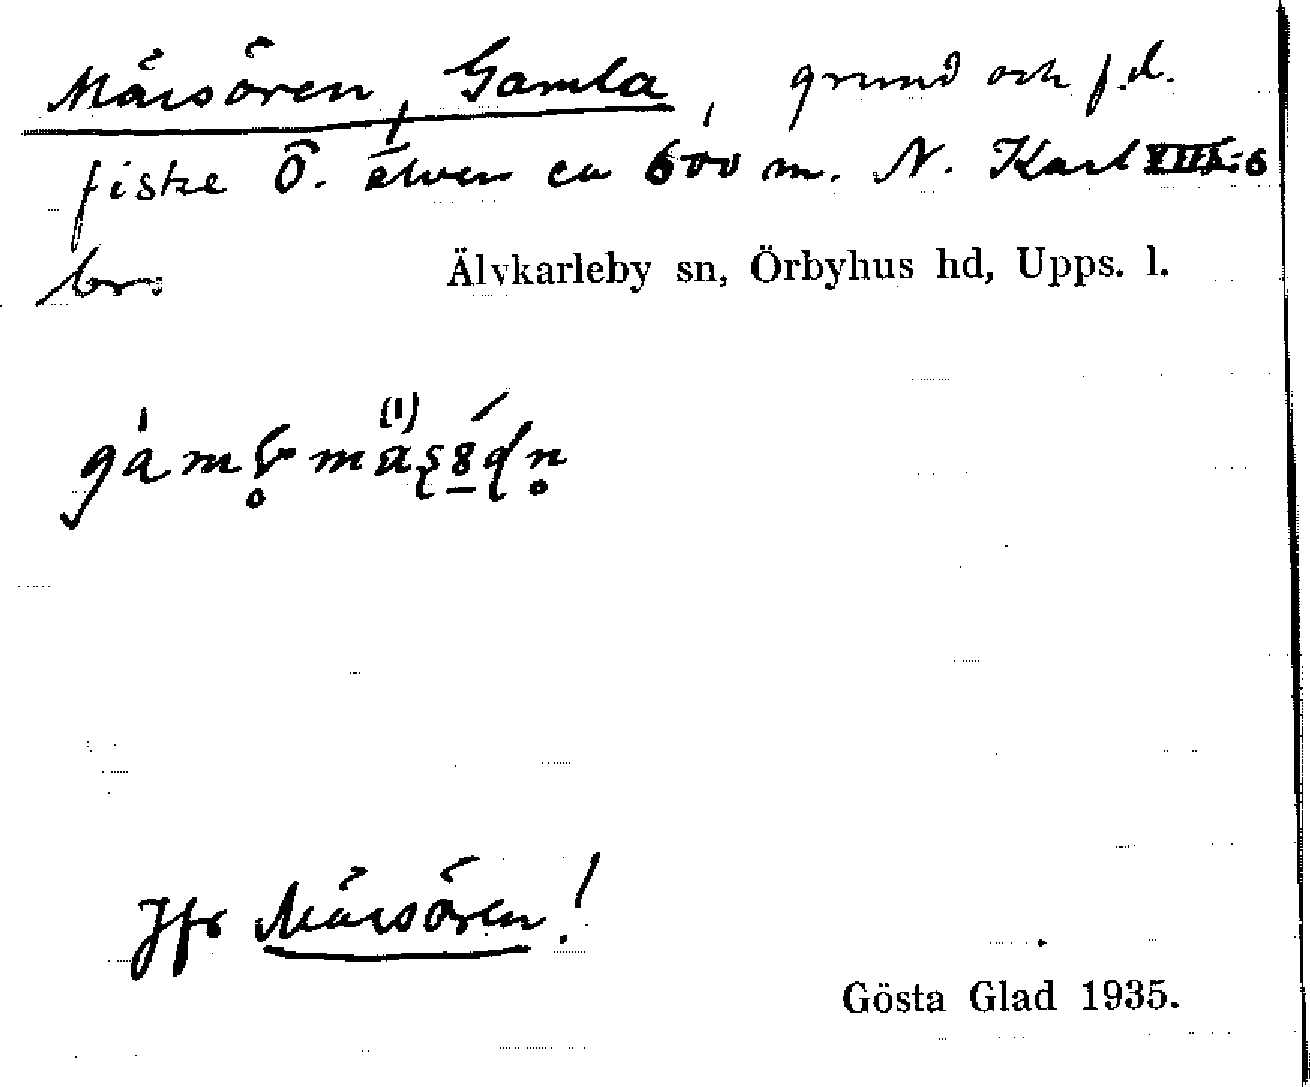 Mårsören, Gamla, grund och f.d.
fiske Ö. älven ca 600 m. N. Karl XIII:s
bro
Älvkarleby sn, Örbyhus hd, Upps. l.
Jfr Mårsören!
Gösta Glad 1935.